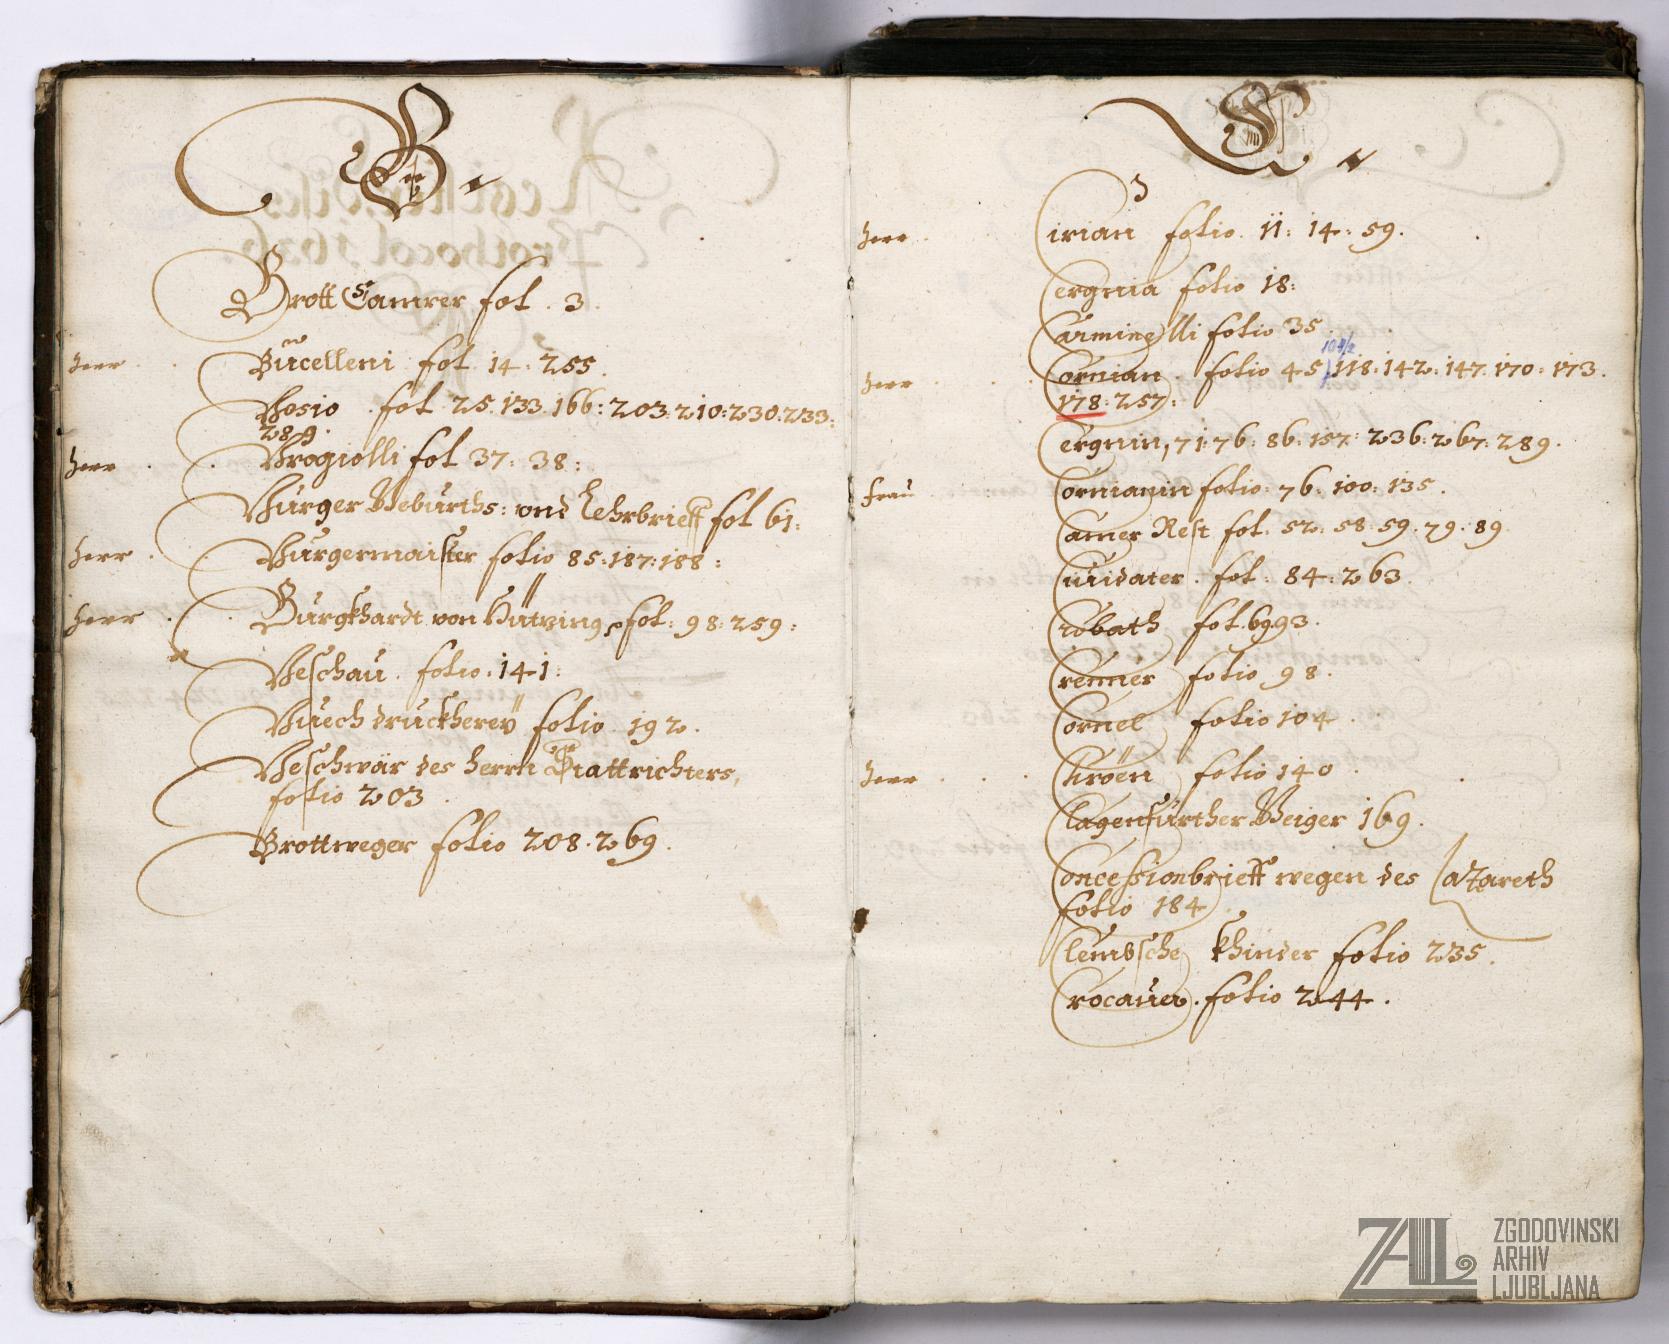 B
Brott Camrer fol. 3.
herr Bücelleni fol. 14: 255.
Bosio fol. 25. 133. 166: 203: 210: 230: 233:
289.
herr Brogiolli fol 37: 38:
Bürger Geburths: vnd Lehrbrieff fol 61:
herr Bürgermaister folio 85: 187: 188:
herr Burgkhardt von fol: 98: 259:
Beschau. folio. 141:
Buech druckhereÿ folio 192.
Beschwär des herrn Stattrichters,
folio 203.
Brottweger folio 208. 269.
C
herr Cirian folio. 11: 14: 59.
folio 18:
Carminelli folio 35.
104/2
herr Cornian. folio 45 118: 142: 147: 170: 173.
178: 257:
71: 76: 86: 157: 236: 267: 289.
frau Cornianin folio: 76: 100: 135.
Camer Rest fol. 52: 58: 59: 79: 89
fol: 84: 263.
Crobath fol. 69. 93.
Crenner folio 98.
Cornel folio 104.
herr Chröen folio 140.
Clagenfurther Geiger 169.
Concessionbrieff wegen des Lazareth
folio 184
khinder folio 235.
Crocauer. folio 244.
ZAL ZGODOVINSKI
ARHIV
LJUBLJANA